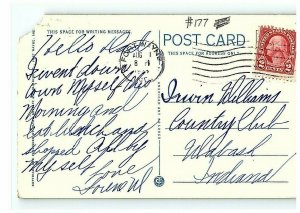 #177
THIS SPACE FOR WRITING MESSAGES
POST CARD
THIS SPACE FOR ADDRESS ONLY
WAYNE
AUG
8
Hello Dad
I went down
town Myself this
Morning and
eat lunch and
shopped All by
Myself
Love
Irwin Williams
Country Club
Wabash
Indiana